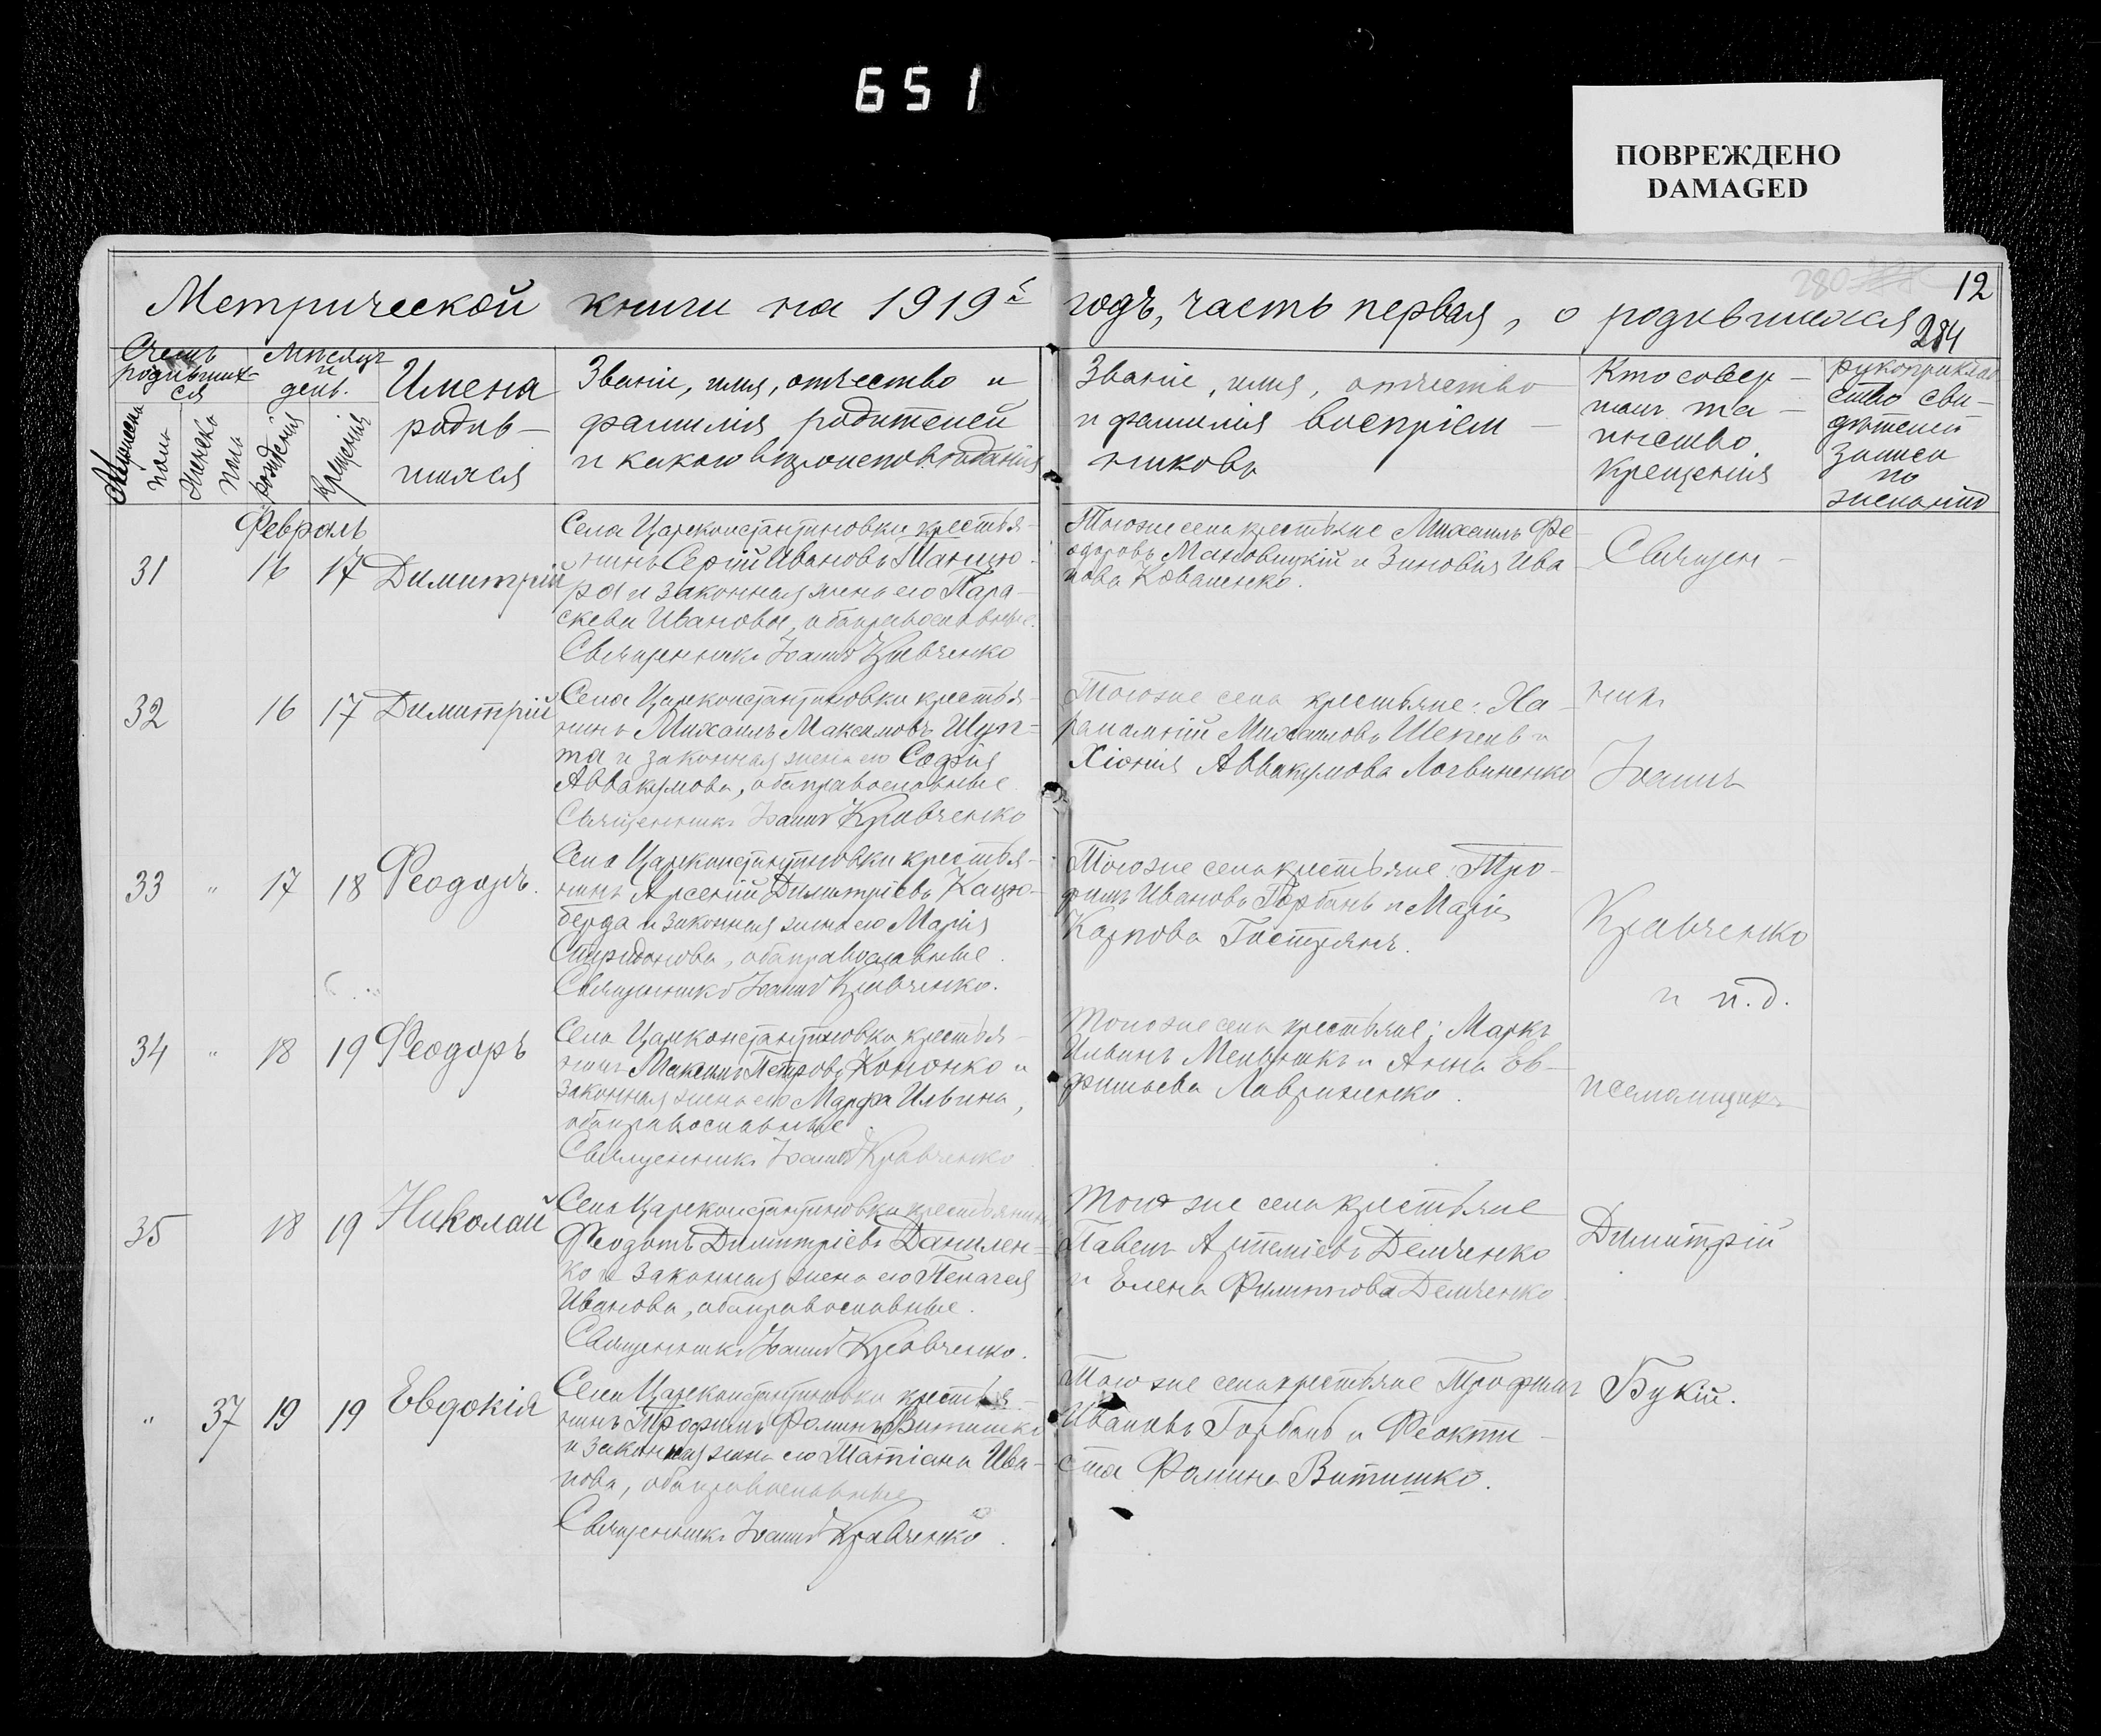 651
ПОВРЕЖДЕНО
DAMAGED
12
280
284
Метрической книги на 1919й годъ, часть первая, о родившихся
Счетъ родивших-ся
Мѣсяцъ и день.
Имена родив-шихся
Званіе, имя, отчество и
фамилія родителей
и какого вѣроисповѣданія
Званіе, имя, отчество
и фамилія воспріем-
никовъ
Кто совер-
шалъ та-
инство
крещенія
рукоприклад-
ство сви-
дѣтелей
записи
по
желанію
Мужеска пола
Женска пола
рожденія
крещенія
Февраль
31 16 17 Димитрій
Села Цареконстантиновки крестья-
нинъ Сергій Ивановъ
ра и законная жена его Пара-
скева Иванова, оба православные.
Священникъ Іоаннъ Кравченко
Того же села крестьяне Михаилъ Фе-
одоровъ Мановицкій и Зиновія Ива-
нова Коваленко.
Священ-
32 16 17 Димитрій
Села Цареконстантиновки крестья-
нинъ Михаилъ Максимовъ Шуп-
та и законная жена его Софія
Аввакумова, оба православные
Священникъ Іоаннъ Кравченко
Того же села крестьяне: Ха-
рлампій Михаиловъ Шепель и
Хіонія Аввакумова Логвиненко
никъ
Іоаннъ
33 " 17 18 Феодоръ.
Села Цареконстантиновки крестья-
нинъ Арсеній Димитріевъ Кацю-
берда и законная жена его Марія
Спиридонова, оба православные.
Священникъ Іоаннъ Кравченко.
Того же села крестьяне: Тро-
фимъ Ивановъ Горбань и Марія
Карпова
Кравченко
и и.д.
34 " 18 19 Феодоръ
Села Цареконстантиновки крестья-
нинъ Максимъ Петровъ Кононко и
законная жена его Марфа Ильина,
оба православные.
Священникъ Іоаннъ Кравченко
Того же села крестьяне: Маркъ
Ильинъ и Анна Ев-
фимьева Лавриненко.
псаломщика
35 18 19 Николай
Села Цареконстантиновки крестьянинъ
Феодотъ Димитріевъ Данилен-
ко и законная жена его Пелагея
Иванова, оба православные.
Священникъ Іоаннъ Кравченко.
Того же села крестьяне
Павелъ Артеміевъ Демченко
и Елена Филиппова Демченко
Димитрій
" 37 19 19 Евдокія
Села Цареконстантиновки крестья-
нинъ Трофимъ Фоминъ Витишко
и законная жена его Татіана Ива-
нова, оба православные
Священникъ Іоаннъ Кравченко.
Того же села крестьяне Трофимъ
Ивановъ Горбань и Феокти-
ста Фомина Витишко.
Букій.